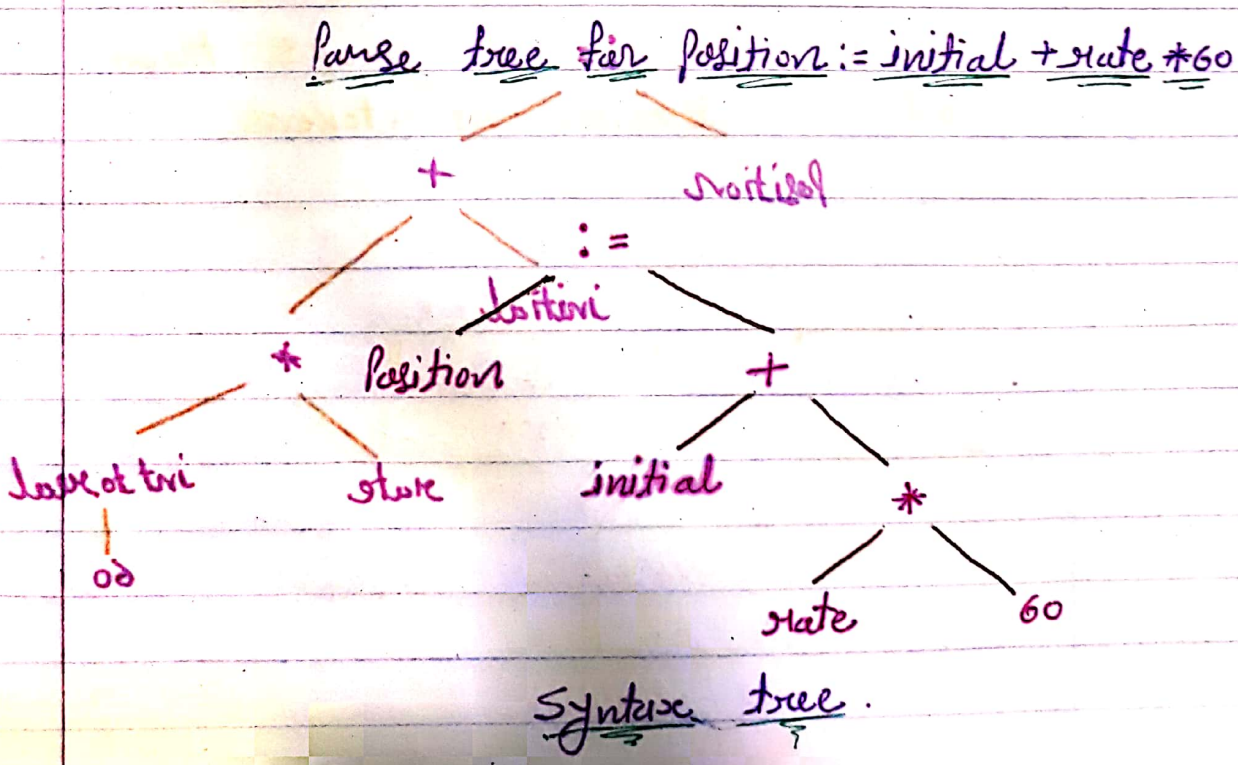 Parse tree for Position := initial + rate *60
:=
Position +
initial *
rate 60
Syntax tree.